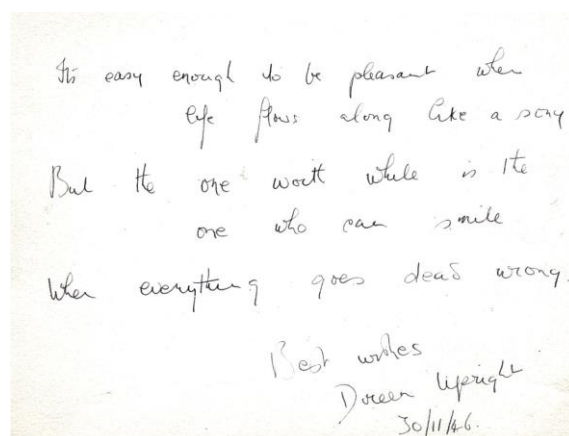 It's easy enough to be pleasant when
life flows along like a song
But the one worth while is the
one who can smile
When everything goes dead wrong.
Best wishes
Doreen Upright
30/11/46.